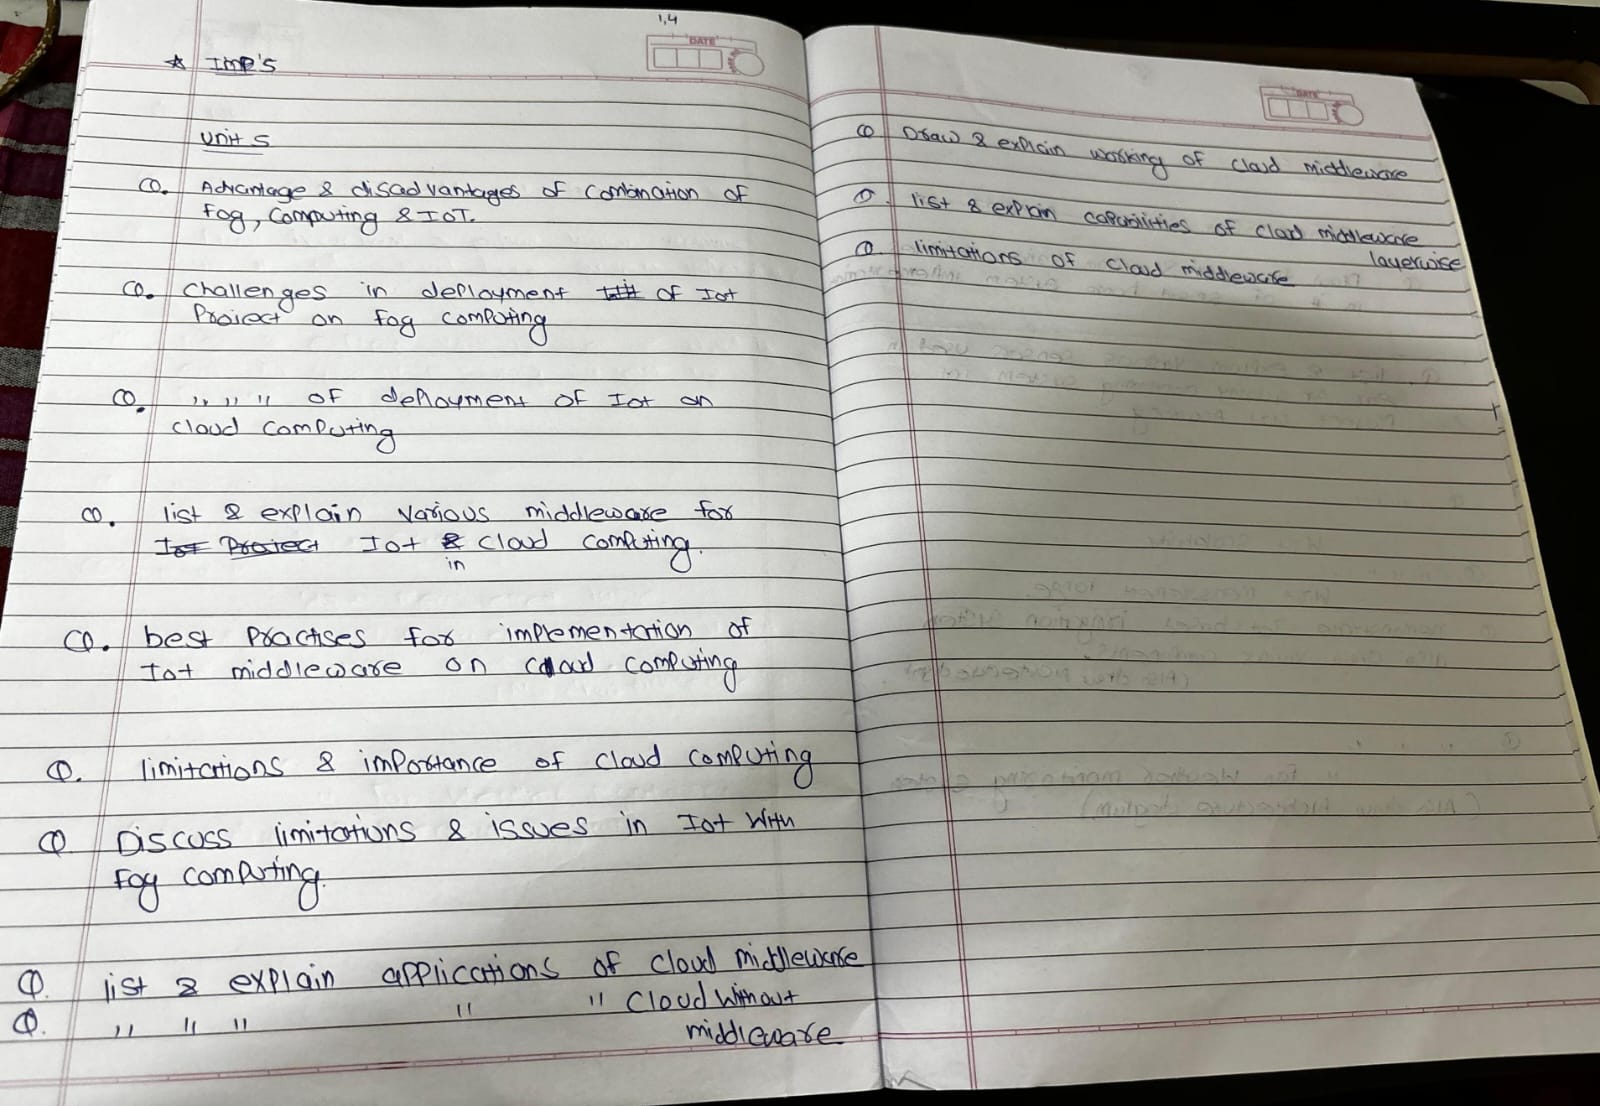 1,4
DATE
☆ IMP's
Unit 5
Q. Advantage & disadvantages of combination of
Fog, Computing & IoT.
Q. Challenges in deployment of Iot
Project on fog computing
Q. ,, ,, ,, of deployment of Iot on
cloud computing
Q. list & explain various middleware for
Iot Project Iot & cloud computing.
in
Q. best practises for implementation of
Iot middleware on cloud computing
Q. limitations & importance of cloud computing
Q Discuss limitations & issues in Iot with
Fog computing.
Q. list & explain applications of cloud middleware
Q. ,, ,, ,, ,, ,, Cloud without
middleware
DATE
Q Draw & explain working of cloud middleware
Q. list & explain capabilities of cloud middleware
layerwise
Q. limitations of cloud middleware